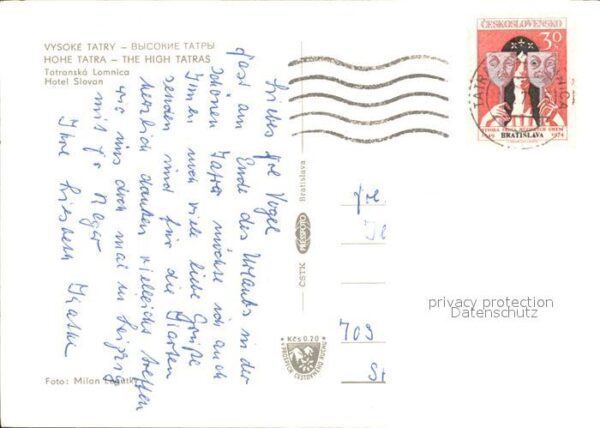 VYSOKÉ TATRY – ВЫСОКИЕ ТАТРЫ
HOHE TATRA – THE HIGH TATRAS
Tatranská Lomnica
Hotel Slovan
ČESKOSLOVENSKO
30 h
VYSOKÁ ŠKOLA MÚZICKÝCH UMENÍ
1949 BRATISLAVA 1974
TATR
NICA
Liebes Frl. Vogel
fast am Ende des Urlaubs in der
schönen Tatra möchte ich auch
Ihnen noch viele liebe Grüße
senden und für die Karten
herzlich danken vielleicht treffen
wir uns doch mal in Leipzig
mit Fr
Ihre
ČSTK PRESSFOTO Bratislava
Kčs 0.20
Frl
709
privacy protection
Datenschutz
Foto: Milan